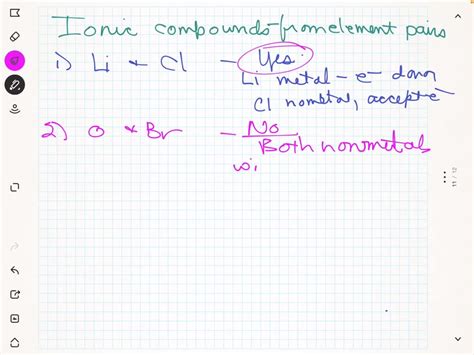 Ionic compounds from element pairs
1) Li & Cl – Yes.
Li metal – e⁻ donor
Cl nometal, accept e⁻
2) O & Br – No
Both nonmetals
wi
11 / 12